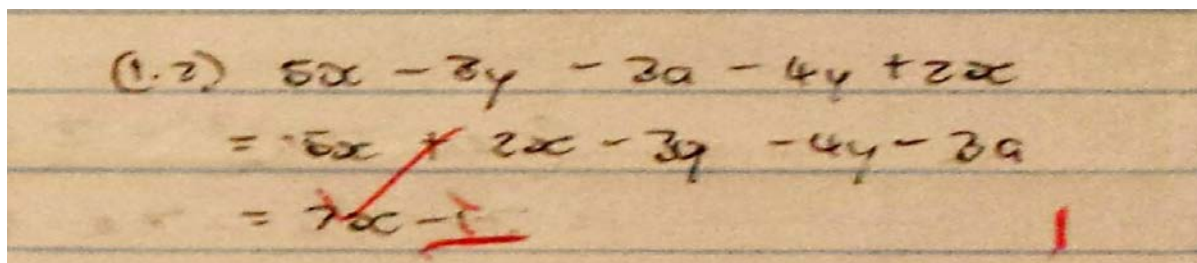 (1.2) 5x - 3y - 3a - 4y + 2x
= 5x + 2x - 3y - 4y - 3a
= 7x -
1